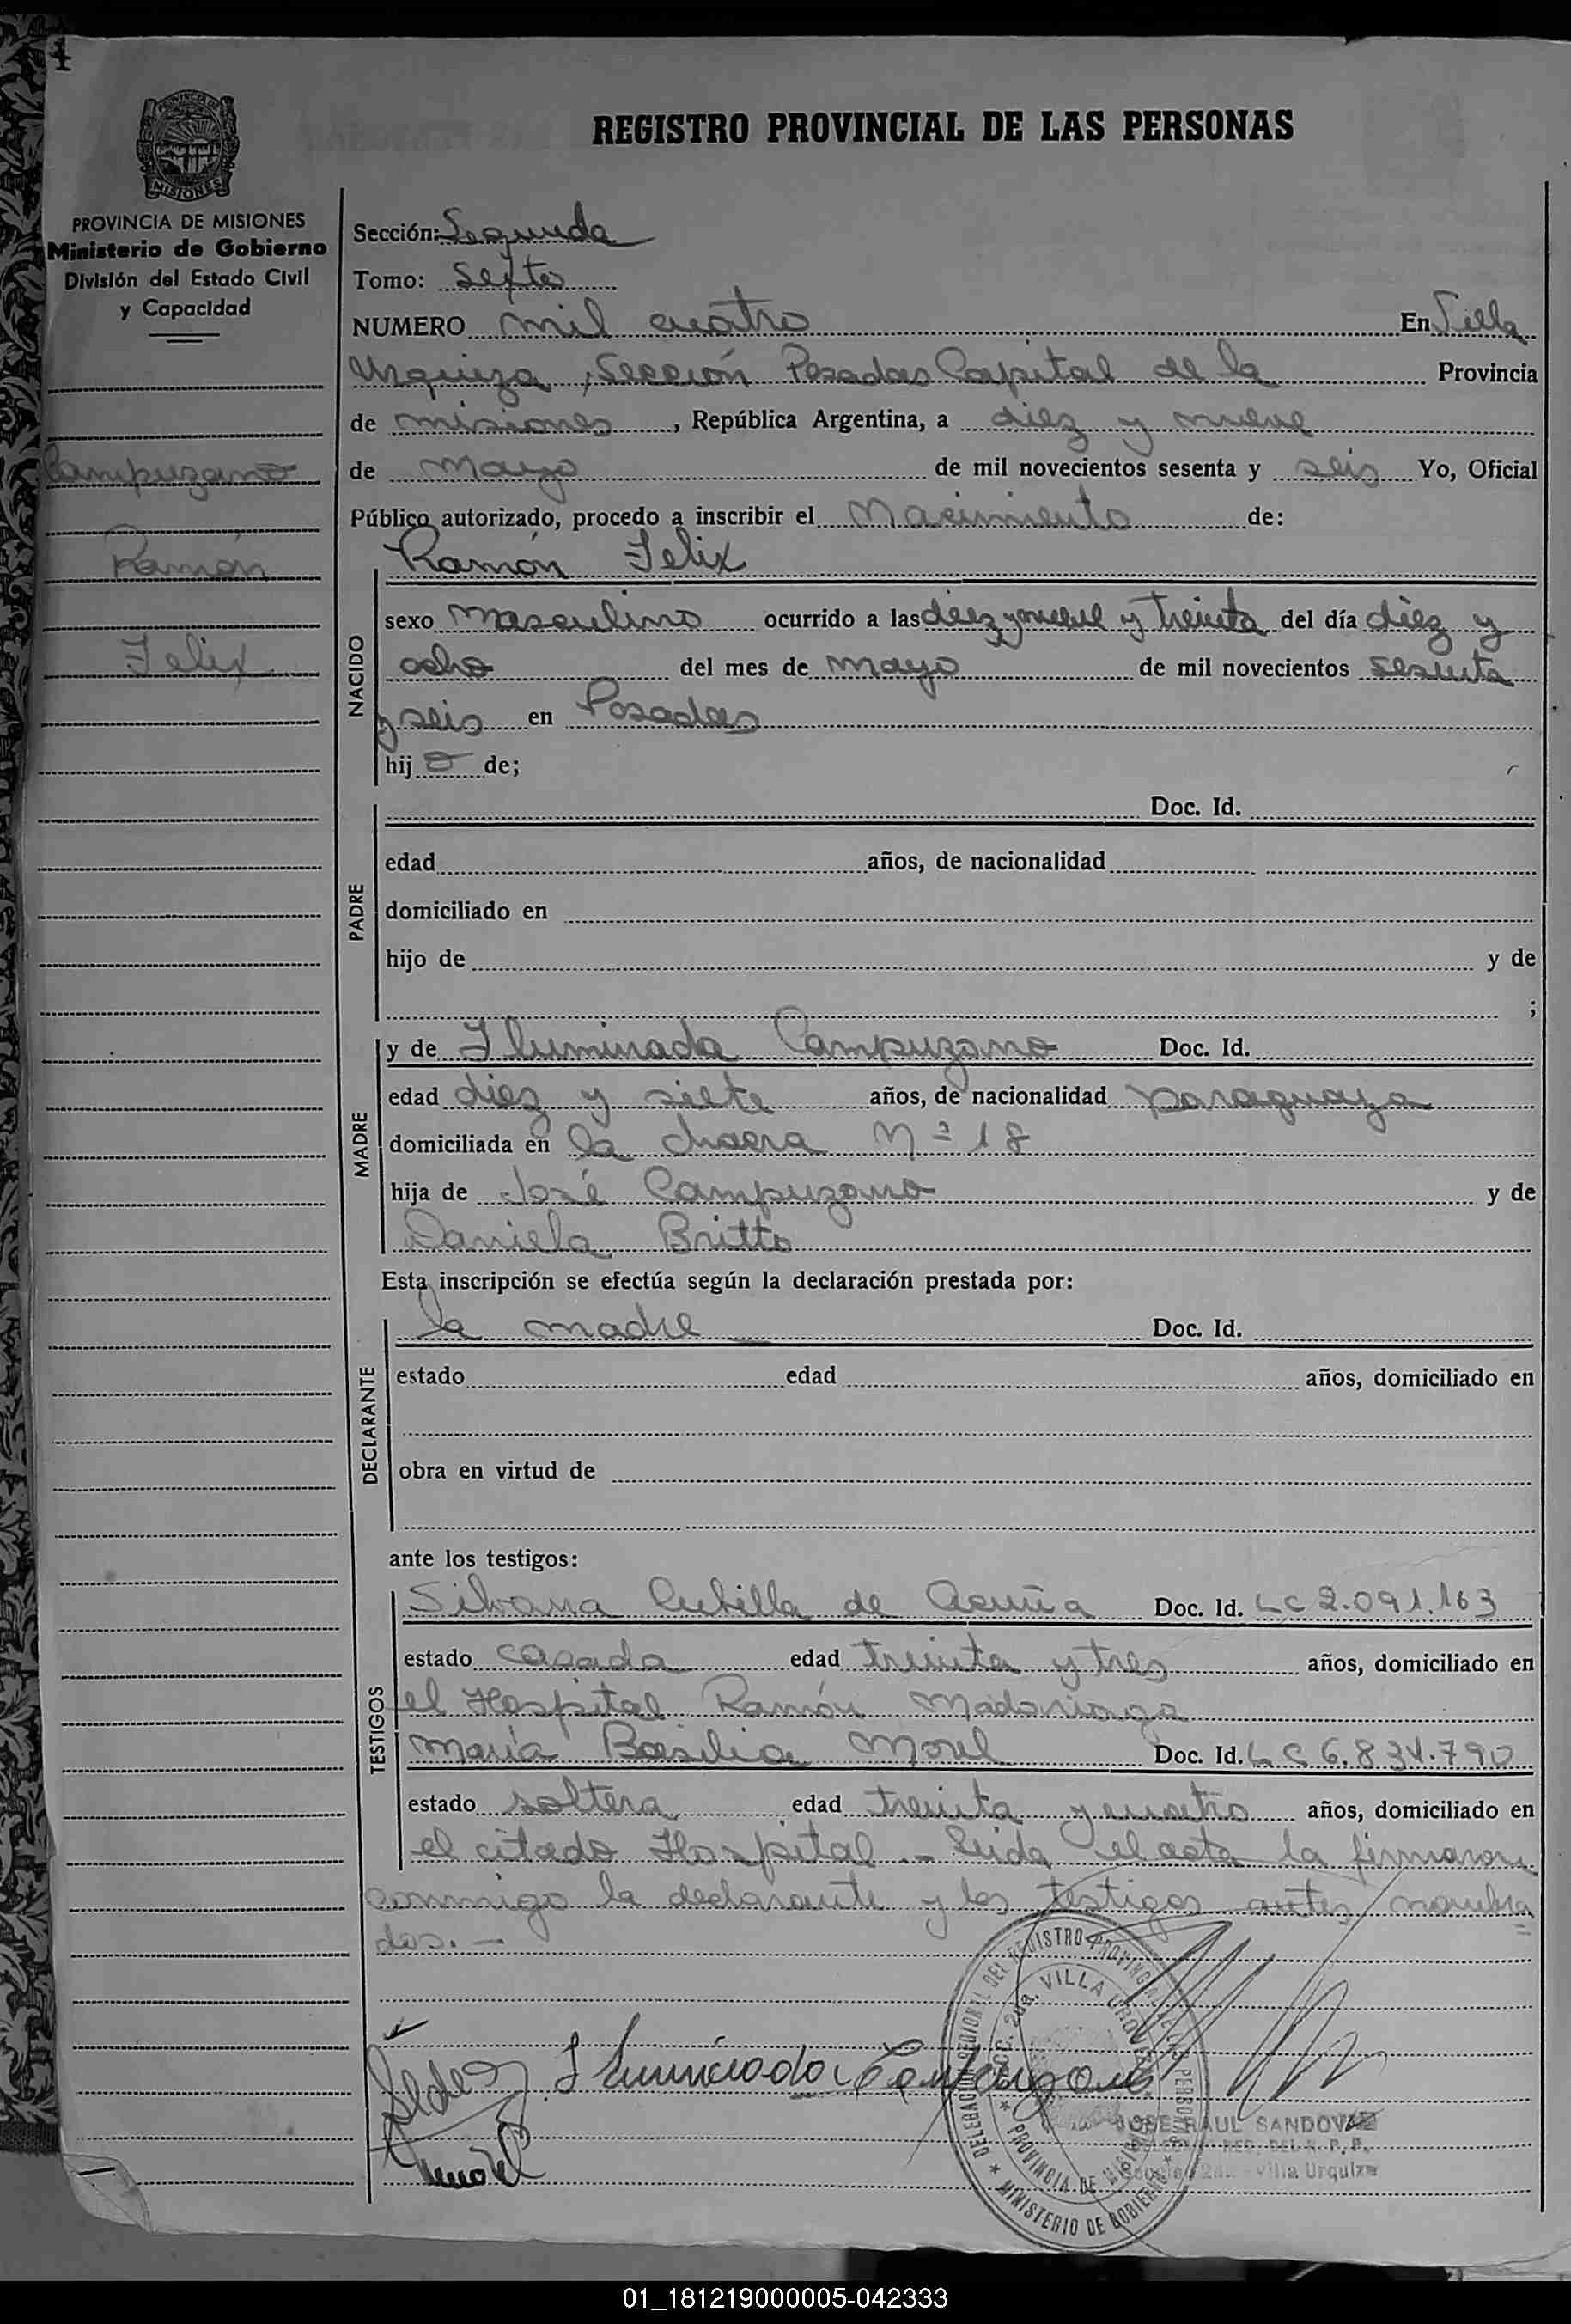 REGISTRO PROVINCIAL DE LAS PERSONAS
MISIONES
PROVINCIA DE MISIONES
Ministerio de Gobierno
División del Estado Civil
y Capacidad
Campuzano
Ramón
Felix
Sección: Segunda
Tomo: Sexto
NUMERO mil cuatro En Villa
Urquiza, Sección Posadas Capital de la Provincia
de misiones, República Argentina, a diez y nueve
de mayo de mil novecientos sesenta y seis Yo, Oficial
Público autorizado, procedo a inscribir el Nacimiento de:
NACIDO
Ramón Felix
sexo masculino ocurrido a las diez y nueve y treinta del día diez y
ocho del mes de mayo de mil novecientos sesenta
y seis en Posadas
hijo de;
PADRE
Doc. Id.
edad años, de nacionalidad
domiciliado en
hijo de y de
;
MADRE
y de Iluminada Campuzano Doc. Id.
edad diez y siete años, de nacionalidad paraguaya
domiciliada en la chacra Nº 18
hija de José Campuzano y de
Daniela Britto
Esta inscripción se efectúa según la declaración prestada por:
DECLARANTE
la madre Doc. Id.
estado edad años, domiciliado en
obra en virtud de
ante los testigos:
TESTIGOS
Silvana Cubilla de Acuña Doc. Id. LC 2.091.163
estado casada edad treinta y tres años, domiciliado en
el Hospital Ramón Madariaga
María Basilia Morel Doc. Id. LC 6.834.790
estado soltera edad treinta y cuatro años, domiciliado en
el citado Hospital.- Leida el acta la firmaron
conmigo la declarante y los testigos antes nombra=
dos.-
Iluminada Campuzano
Morel
DELEGACION REGIONAL DEL REGISTRO PROVINCIAL DE LAS PERSONAS
SECC. 2da. VILLA URQUIZA
PROVINCIA DE MISIONES
MINISTERIO DE GOBIERNO
JOSE RAUL SANDOVAL
DEL R. P. P.
Sección 2da. - Villa Urquiza
01_181219000005-042333